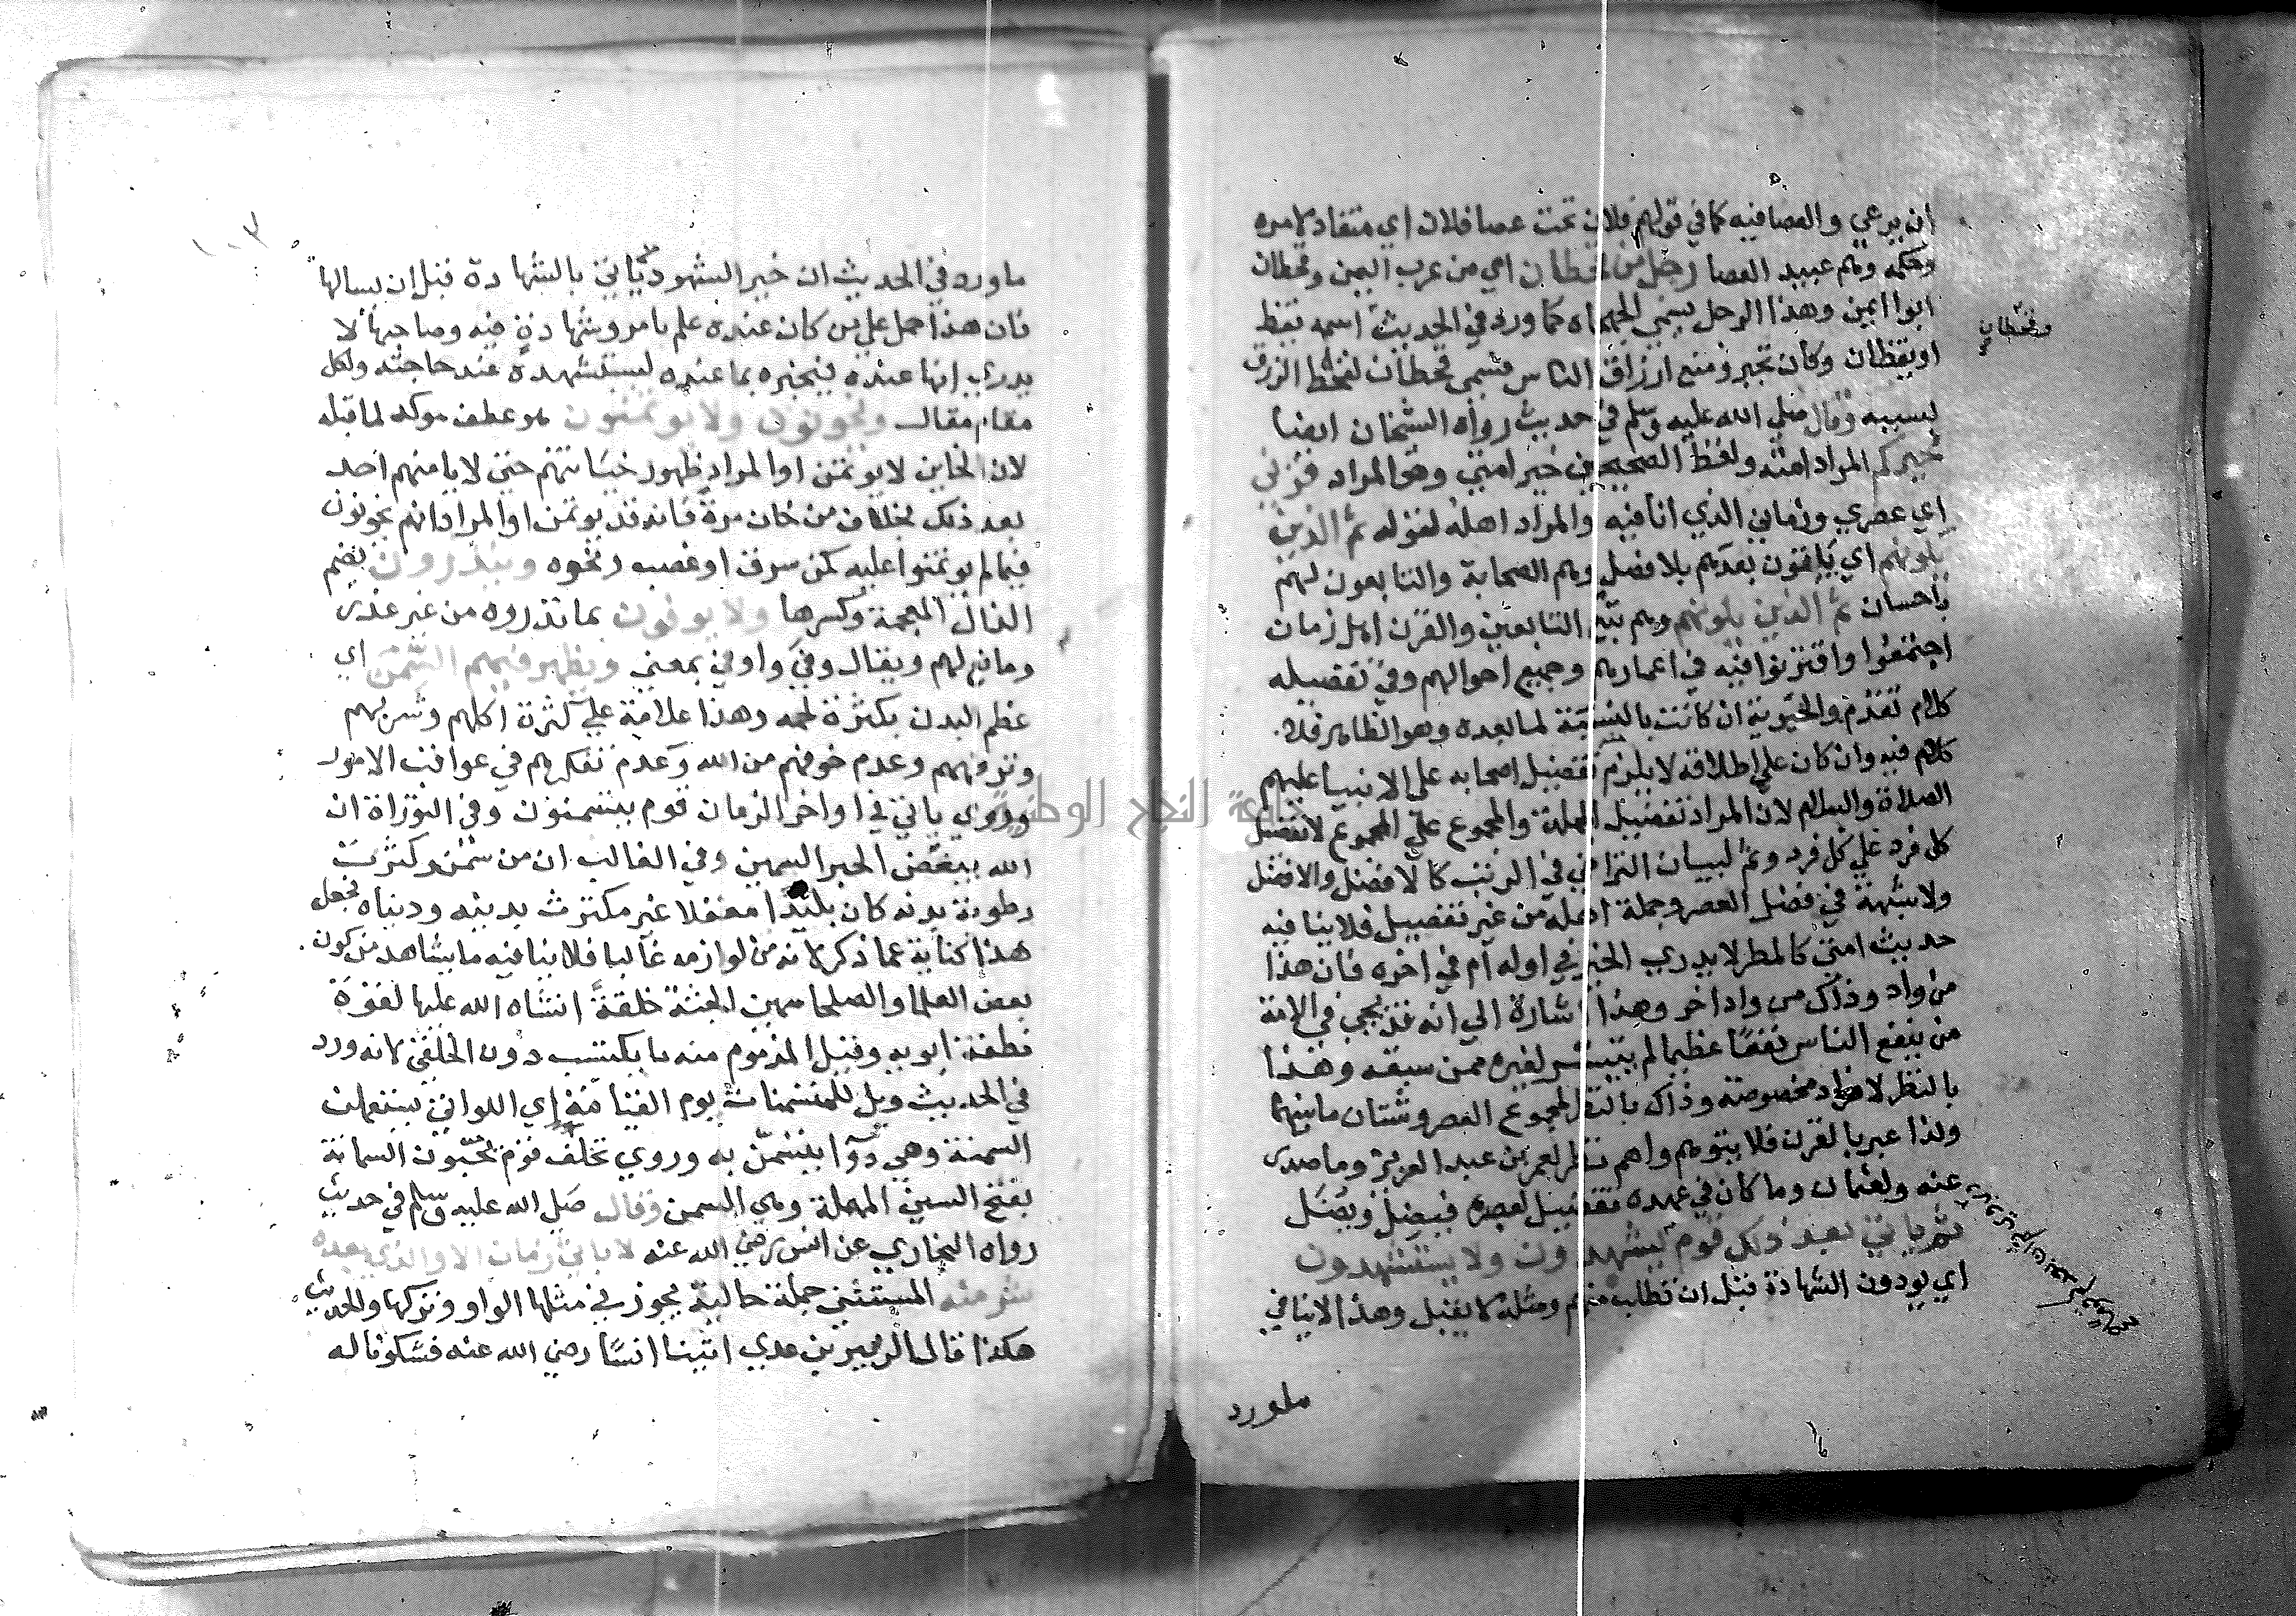 ان يرعي والعصا فيه كما في قولهم فلان تحت عصا فلان اي منقاد لامره
وحكمه وهم عبيد العصا رجل من قحطان اي من عرب اليمن وقحطان
ابوا اليمن وهذا الرجل يسمي الجهجاه كما ورد في الحديث اسمه يقظ
او يقظان وكان تجبر ومنع ارزاق الناس فسمي قحطان لقحط الرزق
بسببه وقال صلي الله عليه وسلم في حديث رواه الشيخان ايضا
خيركم المراد امته ولفظ الصحيحين خير امتي وهو المراد قرني
اي عصري وزماني الذي انا فيه والمراد اهله لقوله ثم الذين
يلونهم اي يلقون بعدهم بلا فصل وهم الصحابة والتابعون لهم
باحسان ثم الذين يلونهم وهم تبع التابعين والقرن اهل زمان
اجتمعوا واقترنوا فيه في اعمارهم وجميع احوالهم وفي تفصيله
كلام تقدم والخيرية ان كانت بالنسبة لما بعده وهو الظاهر فلا
كلام فيه وان كان علي اطلاقه لا يلزم تفضيل اصحابه علي الانبيا عليهم
الصلاة والسلام لان المراد تفضيل الجملة والمجموع علي المجموع لا تفضيل
كل فرد علي كل فرد وثم لبيان التراخي في الرتب كالافضل والافضل
ولا شبهة في فضل العصر وجملة اهله من غير تفصيل فلا ينافيه
حديث امتي كالمطر لا يدري الخير في اوله ام في اخره فان هذا
من واد وذلك من واد اخر وهذا اشارة الي انه قد يجي في الامة
من ينفع الناس نفعا عظيما لم يتيسر لغيره ممن سبقه وهذا
بالنظر لافراد مخصوصة وذاك بالنظر لمجموع العصر وشتان ما بينهما
ولذا عبر بالقرن فلا يتوهم واهم نظر لعمر بن عبد العزيز وما صدر
عنه ولعثمان وما كان في عهده تفضيل لعصره فيضل ويضل
ثم ياتي بعد ذلك قوم يشهدون ولا يستشهدون
اي يودون الشهادة قبل ان تطلب منهم ومثله لا يقبل وهذا لا ينافي
وقحطان
ما ورد
ما ورد في الحديث ان خير الشهود من ياتي بالشهادة قبل ان يسالها
فان هذا حمل علي من كان عنده علم بامر وشهادة فيه وصاحبها لا
يدري انها عنده فيخبره بما عنده ليستشهده عند حاجته ولكل
مقام مقال ويخونون ولا يوتمنون هو عطف موكد لما قبله
لان الخاين لا يوتمن او المراد ظهور خيانتهم حتي لا يامنهم احد
بعد ذلك بخلاف من خان مرة فانه قد يوتمن او المراد انهم يخونون
فيما لم يوتمنوا عليه كمن سرق او غصب ونحوه وينذرون بضم
الذال المعجمة وكسرها ولا يوفون بما نذروه من غير عذر
ومانع لهم ويقال وفي واوفي بمعني ويظهر فيهم السمن اي
عظم البدن بكثرة لحمه وهذا علامة علي كثرة اكلهم وشربهم
وترفههم وعدم خوفهم من الله وعدم تفكرهم في عواقب الامور
وروي ياتي في اواخر الزمان قوم يتسمنون وفي التوراة ان
الله يبغض الحبر السمين وفي الغالب ان من سمن وكثرت
رطوبة بدنه كان بليدا مغفلا غير مكترث بدينه ودنياه فجعل
هذا كناية عما ذكر لانه من لوازمه غالبا فلا ينافيه ما يشاهد من كون
بعض العلما والصلحا سمين الجثة خلقة انشاه الله عليها لقوة
نطفة ابويه وقيل المذموم منه ما يكتسب دون الخلقي لانه ورد
في الحديث ويل للمتسمنات يوم القيامة اي اللواتي يستعملن
السمنة وهي دوآ يتسمن به وروي تخلف قوم يحبون السمانة
بفتح السين المهملة وهي السمن وقال صلي الله عليه وسلم في حديث
رواه البخاري عن انس رضي الله عنه لا ياتي زمان الا والذي بعده
شر منه المستثني جملة حالية يجوز في مثلها الواو وتركها والحديث
هكذا قال الزبير بن عدي اتينا انسا رضي الله عنه فشكونا له